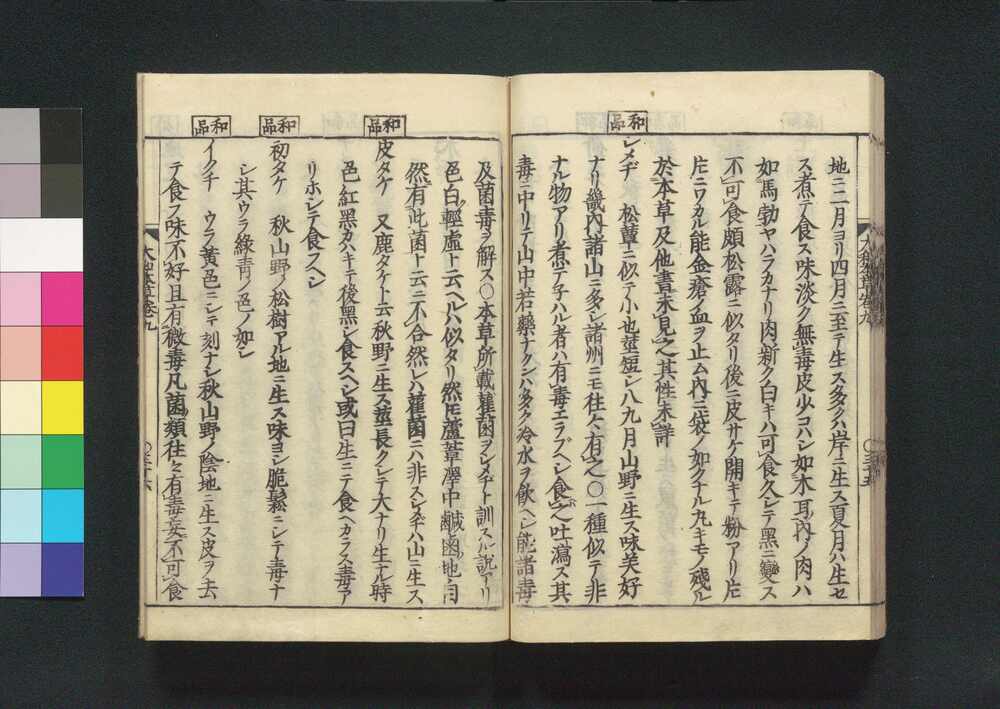 地ニ二月ヨリ四月ニ至テ生ス多クハ岸ニ生ス夏月ハ生セ
ス煮テ食ス味淡ク無毒皮少コハシ如木耳内ノ肉ハ
如馬勃ヤハラカナリ肉新ク白キハ可食久シテ黒ニ變ス
不可食頗松露ニ似タリ後ニ皮サケ開キテ粉アリ片
片ニワカル能金瘡ノ血ヲ止ム内ニ袋ノ如クナル丸キモノ殘ル
於本草及他書未見之其性未詳
和品
シメヂ 松蕈ニ似テ小也莖短シ八九月山野ニ生ス味美好
ナリ畿内諸山ニ多シ諸州ニモ往々有之○一種似テ非
ナル物アリ煮テ子ハル者ハ有毒エラブヘシ食之吐瀉ス其
毒ニ中リテ山中若藥ナクンハ多ク冷水ヲ飲ヘシ能諸毒
及菌毒ヲ解ス○本草所載雚菌ヲシメヂト訓スル説アリ
色白輕虚ト云ヘルハ似タリ然𪜈蘆葦澤中鹹鹵地ニ自
然有此菌ト云ニ不合然レハ雚菌ニハ非スシメヂハ山ニ生ス
和品
皮タケ 又鹿タケト云秋野ニ生ス莖長クシテ大ナリ生ナル時
色紅黒カハキテ後黒シ食スヘシ或曰生ニテ食ヘカラス毒ア
リホシテ食スヘシ
和品
初タケ 秋山野ノ松樹アル地ニ生ス味ヨシ脆鬆ニシテ毒ナ
シ其ウラ緑青ノ色ノ如シ
和品
イクチ ウラ黄色ニシテ刻ナシ秋山野ノ陰地ニ生ス皮ヲ去
テ食フ味不好且有微毒凡菌類往々有毒妄不可食
大和本草卷九
○三十六